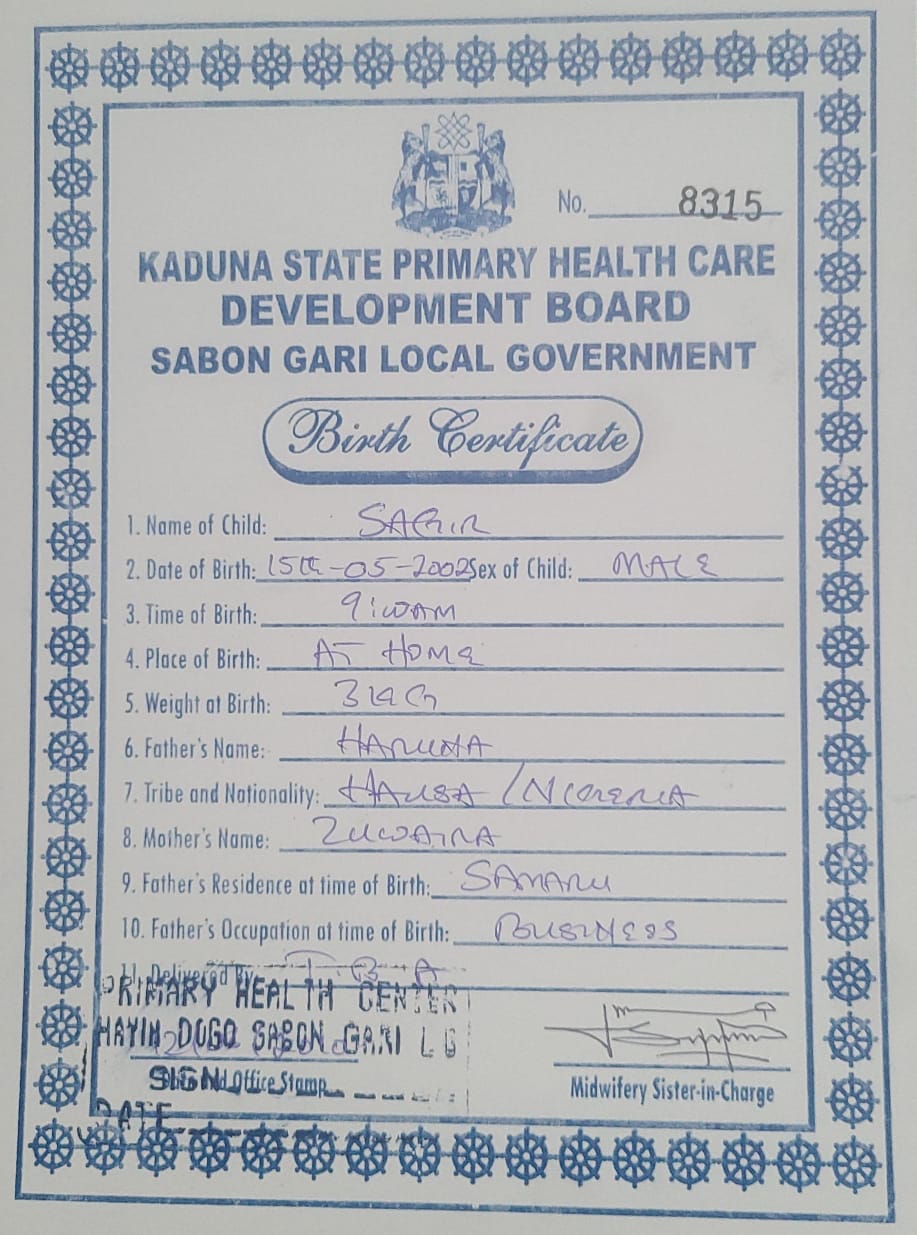 No. 8315
KADUNA STATE PRIMARY HEALTH CARE
DEVELOPMENT BOARD
SABON GARI LOCAL GOVERNMENT
Birth Certificate
1. Name of Child: SAGIR
2. Date of Birth: 15th-05-2002 Sex of Child: MALE
3. Time of Birth: 9:00AM
4. Place of Birth: AT HOME
5. Weight at Birth: 3KG
6. Father's Name: HARUNA
7. Tribe and Nationality: HAUSA / NIGERIA
8. Mother's Name: ZUWAIRA
9. Father's Residence at time of Birth: SAMARU
10. Father's Occupation at time of Birth: BUSINESS
11. Delivered By T.B.A
PRIMARY HEALTH CENTER
HAYIN-DOGO SABON GARI LG
SIGN Office Stamp
Midwifery Sister-in-Charge
DATE